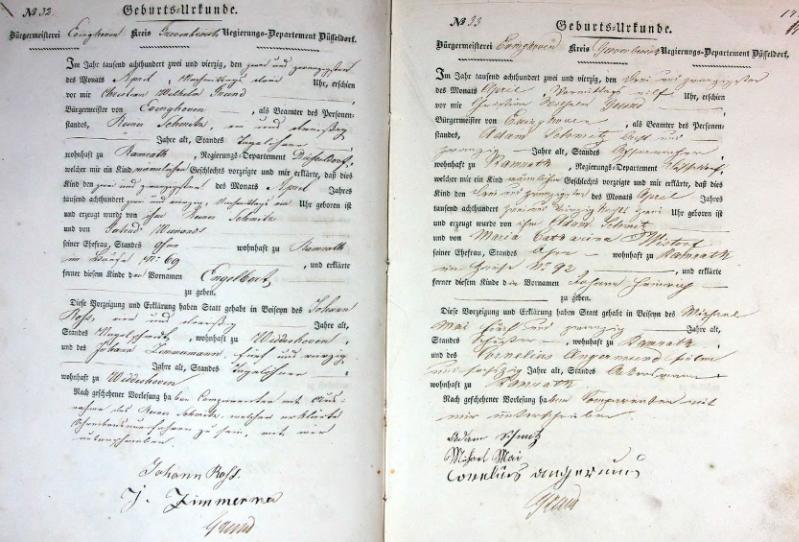 No 32.
Geburts-Urkunde.
Bürgermeisterei Evinghoven Kreis Grevenbroich Regierungs-Departement Düsseldorf.
Im Jahr tausend achthundert zwei und vierzig, den zwei und zwanzigsten
des Monats April, Nachmittags Uhr, erschien
vor mir Christian Wilhelm Grund
Bürgermeister von Evinghoven, als Beamter des Personen-
standes, Schmitz, ein und dreißig
Jahre alt, Standes Tagelöhner
wohnhaft zu Ramrath, Regierungs-Departement Düsseldorf,
welcher mir ein Kind männlichen Geschlechts vorzeigte und mir erklärte, daß dies
Kind den zwei und zwanzigsten des Monats April Jahres
tausend achthundert zwei und vierzig, Nachmittags ein Uhr geboren ist
und erzeugt wurde von ihm Schmitz
und von
seiner Ehefrau, Standes ohne wohnhaft zu Ramrath
im Hause No 69, und erklärte
ferner diesem Kinde den Vornamen Engelbert
zu geben.
Diese Vorzeigung und Erklärung haben Statt gehabt in Beiseyn des Johann
Ross, ein und dreißig Jahre alt,
Standes Nagelschmidt, wohnhaft zu Widdeshoven,
und des Johann Zimmermann, fünf und vierzig
Jahre alt, Standes Tagelöhner
wohnhaft zu Widdeshoven
Nach geschehener Vorlesung haben Comparenten mit Aus-
nahme des Schmitz, welcher erklärte
Schreibens unerfahren zu sein, mit mir
unterschrieben.
Johann Ross.
J. Zimmerma
Grund
No 33.
Geburts-Urkunde.
Bürgermeisterei Evinghoven Kreis Grevenbroich Regierungs-Departement Düsseldorf.
Im Jahr tausend achthundert zwei und vierzig, den drei und zwanzigsten
des Monats April, Vormittags elf Uhr, erschien
vor mir Christian Wilhelm Grund
Bürgermeister von Evinghoven, als Beamter des Personen-
standes, Adam Schmitz und
zwanzig Jahre alt, Standes Ackerer
wohnhaft zu Ramrath, Regierungs-Departement Düsseldorf,
welcher mir ein Kind männlichen Geschlechts vorzeigte und mir erklärte, daß dies
Kind den drei und zwanzigsten des Monats April Jahres
tausend achthundert zwei und vierzig Uhr geboren ist
und erzeugt wurde von ihm Adam Schmitz
und von Maria Catharina
seiner Ehefrau, Standes ohne wohnhaft zu Ramrath
im Hause No 92, und erklärte
ferner diesem Kinde die Vornamen Johann Heinrich
zu geben.
Diese Vorzeigung und Erklärung haben Statt gehabt in Beiseyn des Michael
Mai fünf und zwanzig Jahre alt,
Standes Schuster, wohnhaft zu Ramrath
und des Cornelius Angermund sieben
und sechzig Jahre alt, Standes Ackersmann
wohnhaft zu Ramrath
Nach geschehener Vorlesung haben Comparenten mit
mir unterschrieben
Adam Schmitz
Michael Mai
Cornelius angermund
Grund